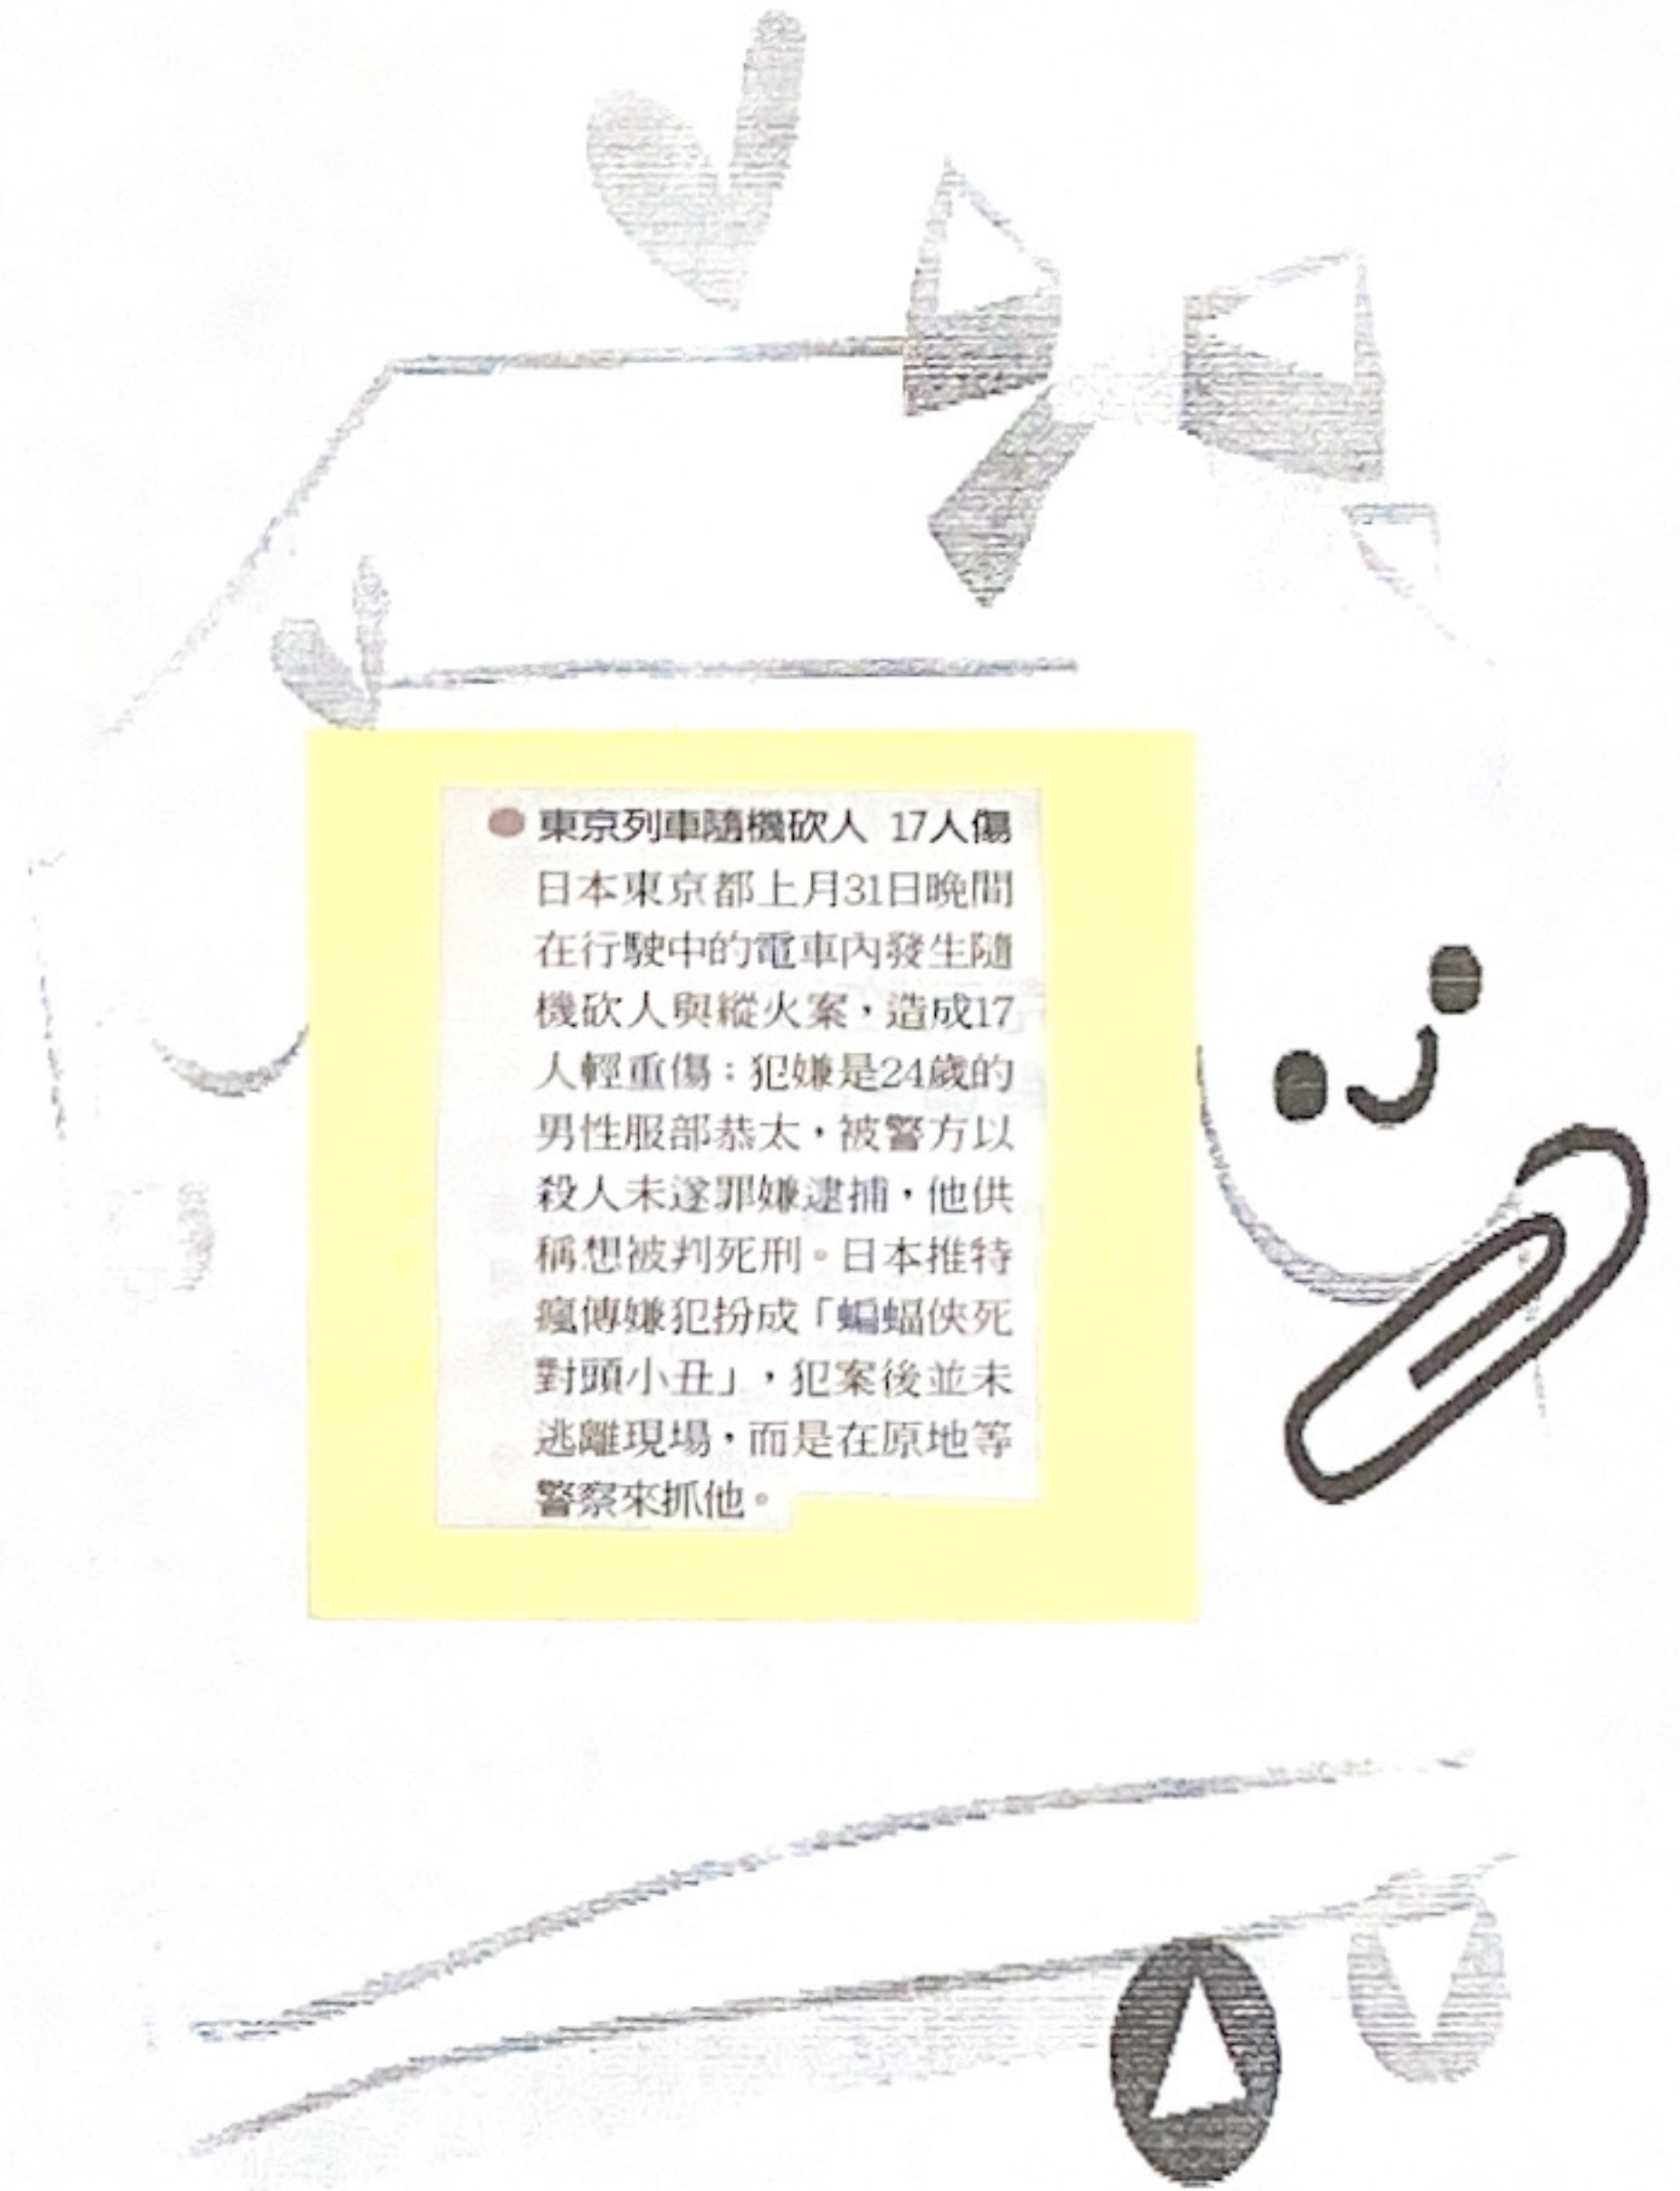 東京列車隨機砍人 17人傷
日本東京都上月31日晚間
在行駛中的電車內發生隨
機砍人與縱火案，造成17
人輕重傷：犯嫌是24歲的
男性服部恭太，被警方以
殺人未遂罪嫌逮捕，他供
稱想被判死刑。日本推特
瘋傳嫌犯扮成「蝙蝠俠死
對頭小丑」，犯案後並未
逃離現場，而是在原地等
警察來抓他。